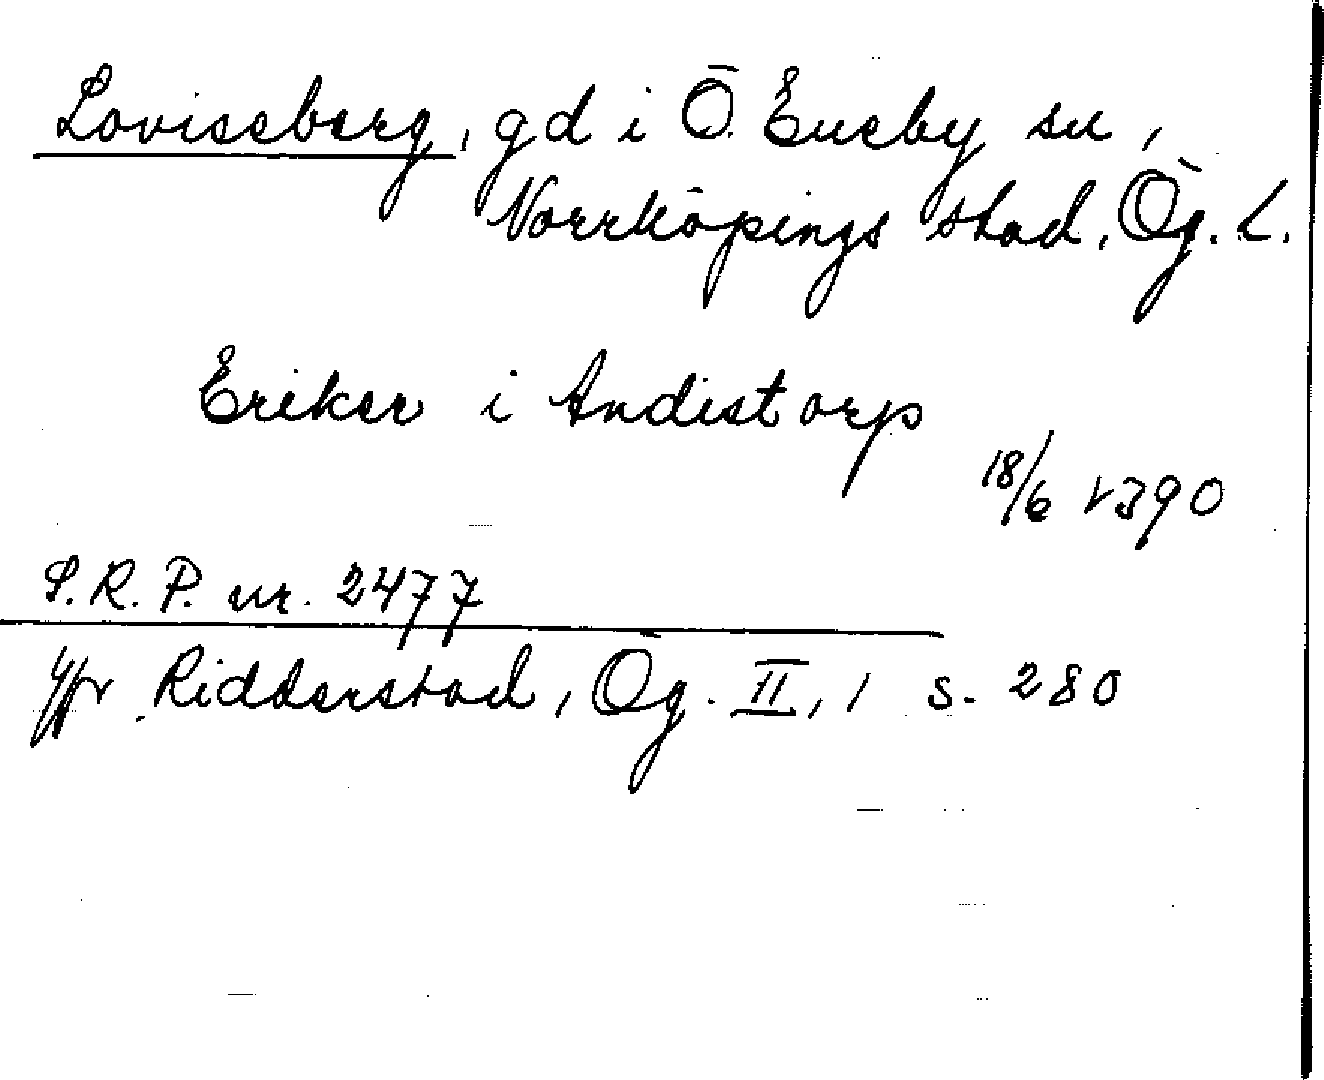 Loviseberg, gd i Ö. Eneby sn,
Norrköpings stad, Ög. L.
Eriker i Andistorp
18/6 1390
S.R.P. nr. 2477
Jfr Ridderstad, Ög. II, 1 s. 280